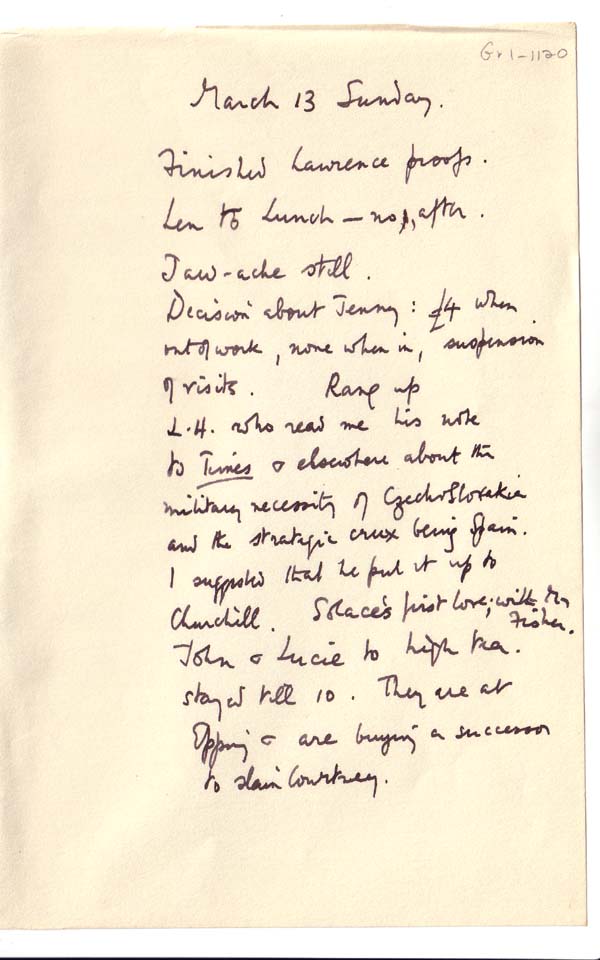 Gr1-1120
March 13 Sunday.
Finished Lawrence proofs.
Len to Lunch — no, after.
Jaw-ache still.
Decision about Jenny: £4 when
out of work, none when in, suspension
of visits. Rang up
L.H. who read me his note
to Times & elsewhere about the
military necessity of CzechoSlovakia
and the strategic crux being Spain.
I suggested that he put it up to
Churchill. Solace's first love; with Mr
Fisher.
John & Lucie to high tea.
stayed till 10. They are at
Epping & are buying a successor
to slain Courtney.